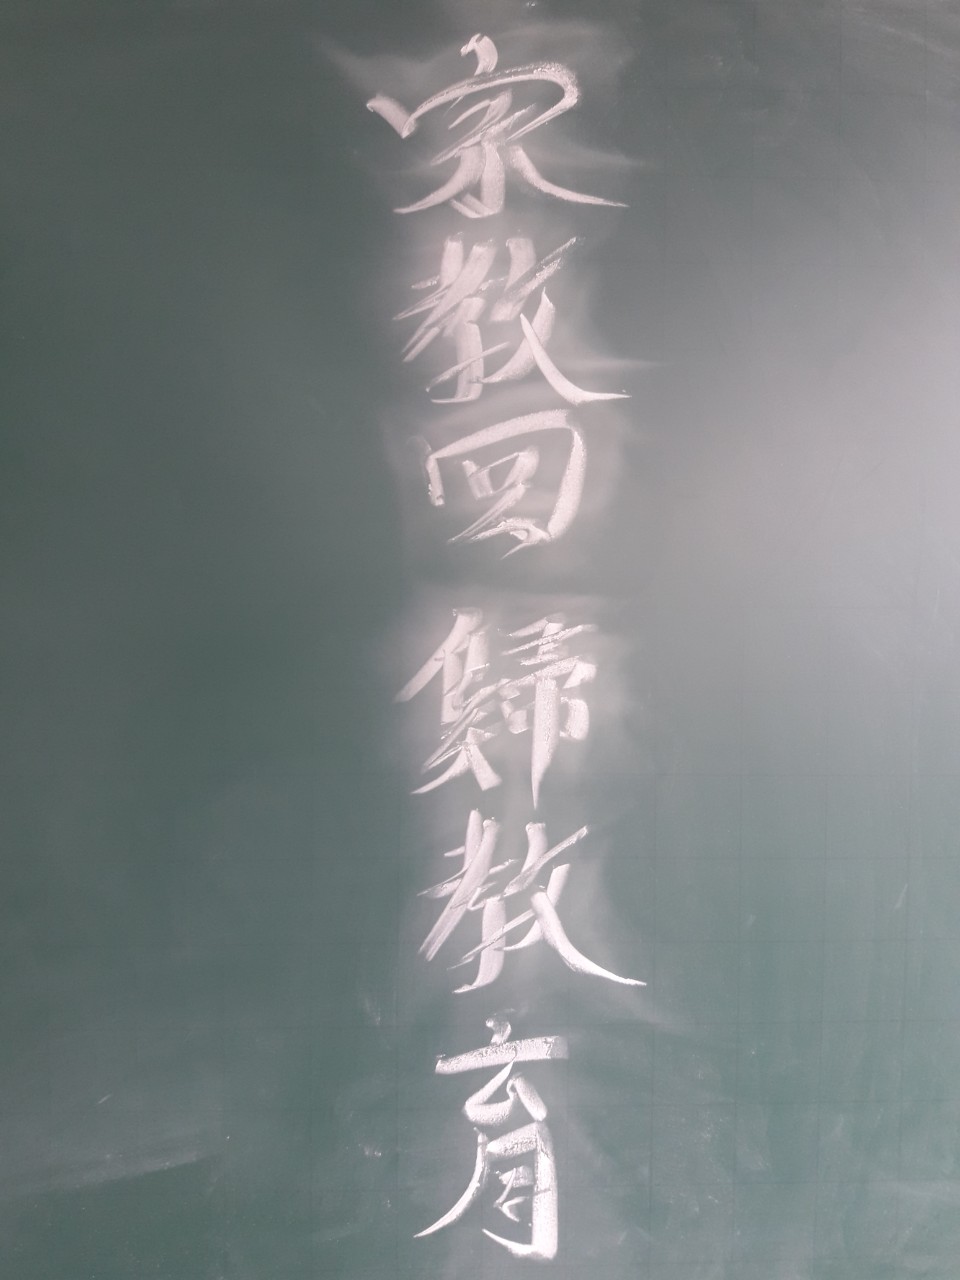 家教回歸教育